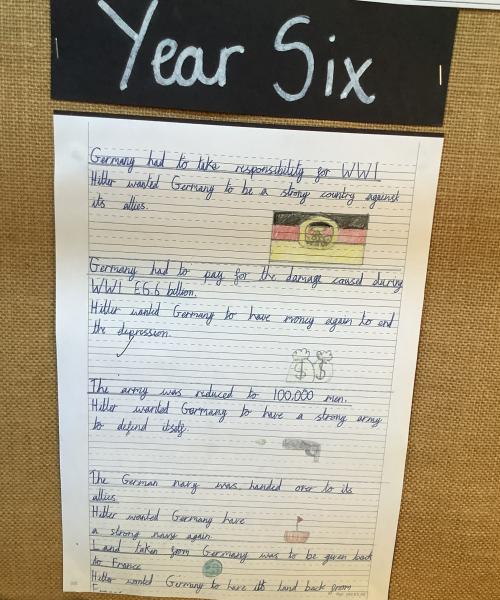 Year Six
Germany had to take responsibility for WW1
Hitler wanted Germany to be a strong country against
its allies.
Germany had to pay for the damage caused during
WW1 £6.6 billion.
Hitler wanted Germany to have money again to end
the depression.
$ $
The army was reduced to 100,000 men.
Hitler wanted Germany to have a strong army
to defend itself.
The German navy was handed over to its
allies.
Hitler wanted Germany have
a strong navy again.
Land taken from Germany was to be given back
to France
Hitler wanted Germany to have its land back from